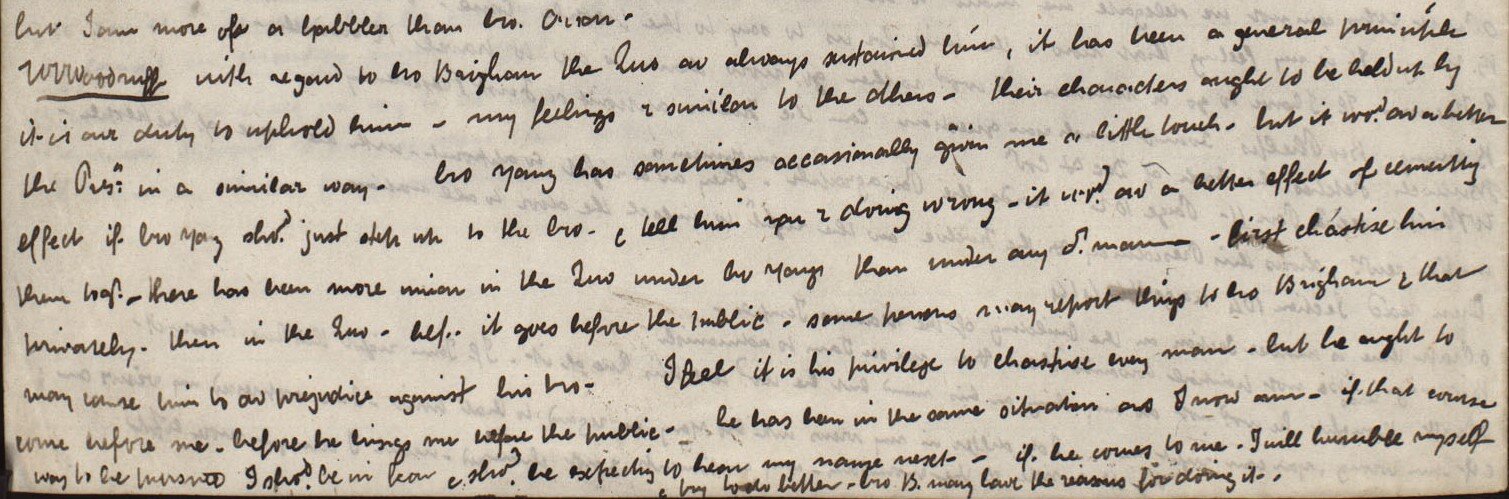 but I am more of a babbler than bro. Orson.
W Woodruff with regard to bro Brigham the Quo av always sustained him, it has been a general principle
it is our duty to uphold him - my feelings r similar to the others - their characters ought to be held up by
the Pres.n in a similar way. bro Young has sometimes occasionally given me a little touch - but it wo.d av a better
effect if bro Yong sho.d just step up to the bro - & tell him you r doing wrong - it wo.d av a better effect of cementing
them tog.r - there has been more union in the Quo under bro Yongs than under any o.r man - first chastise him
privately. then in the Quo - bef.. it goes before the public - some persons may report things to bro Brigham & that
may cause him to av prejudice against his bro - I feel it is his privilege to chastise every man - but he ought to
come before me - before he brings me before the public - he has been in the same situation as I now am - if that course
was to be pursued I sho.d be in fear & sho.d be expecting to hear my name next - if he comes to me. I will humble myself
& try to do better - bro B. may have the reasons for doing it -.